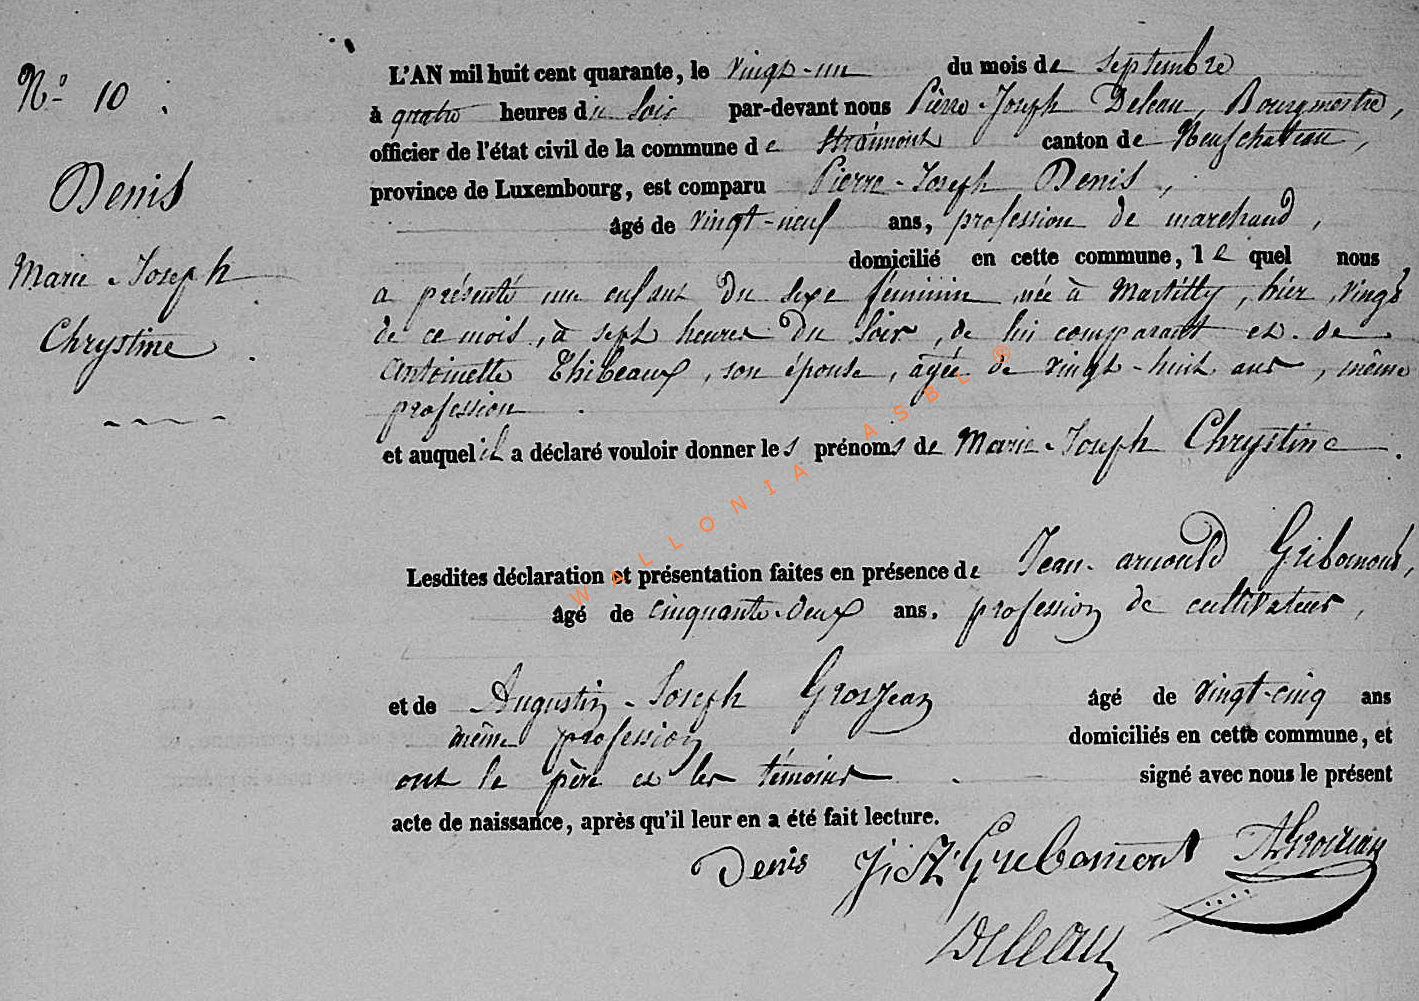 N.o 10.
Denis
Marie-Joseph
Chrystine.
L'AN mil huit cent quarante, le vingt-un du mois de septembre
à quatre heures du soir par-devant nous Pierre-Joseph Deleau, Bourgmestre,
officier de l'état civil de la commune de Straimont canton de Neufchateau,
province de Luxembourg, est comparu Pierre-Joseph Denis,
âgé de vingt-neuf ans, profession de marchand,
domicilié en cette commune, lequel nous
a présenté une enfant du sexe féminin, née à Martilly, hier, vingt
de ce mois, à sept heures du soir, de lui comparant et de
Antoinette Thibeaux, son épouse, agée de vingt-huit ans, même
profession.
et auquel il a déclaré vouloir donner les prénoms de Marie-Joseph Chrystine.
Lesdites déclaration et présentation faites en présence de Jean-arnould Gribomont,
âgé de cinquante-deux ans, profession de cultivateur,
et de Augustin-Joseph Grosjean âgé de vingt-cinq ans
même profession domiciliés en cette commune, et
ont le père et les témoins signé avec nous le présent
acte de naissance, après qu'il leur en a été fait lecture.
Denis Gribomont AGrosjean
Deleau
WALLONIA ASBL ®